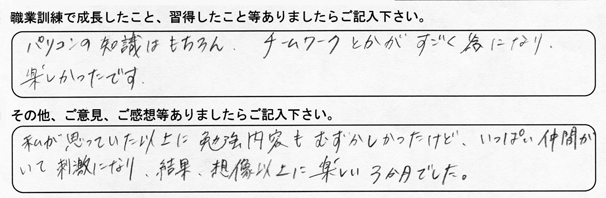 職業訓練で成長したこと、習得したこと等ありましたらご記入下さい。
パソコンの知識はもちろん、チームワークとかがすごく為になり、
楽しかったです。
その他、ご意見、ご感想等ありましたらご記入下さい。
私が思っていた以上に勉強内容もむずかしかったけど、いっぱい仲間が
いて刺激になり、結果、想像以上に楽しい3か月でした。